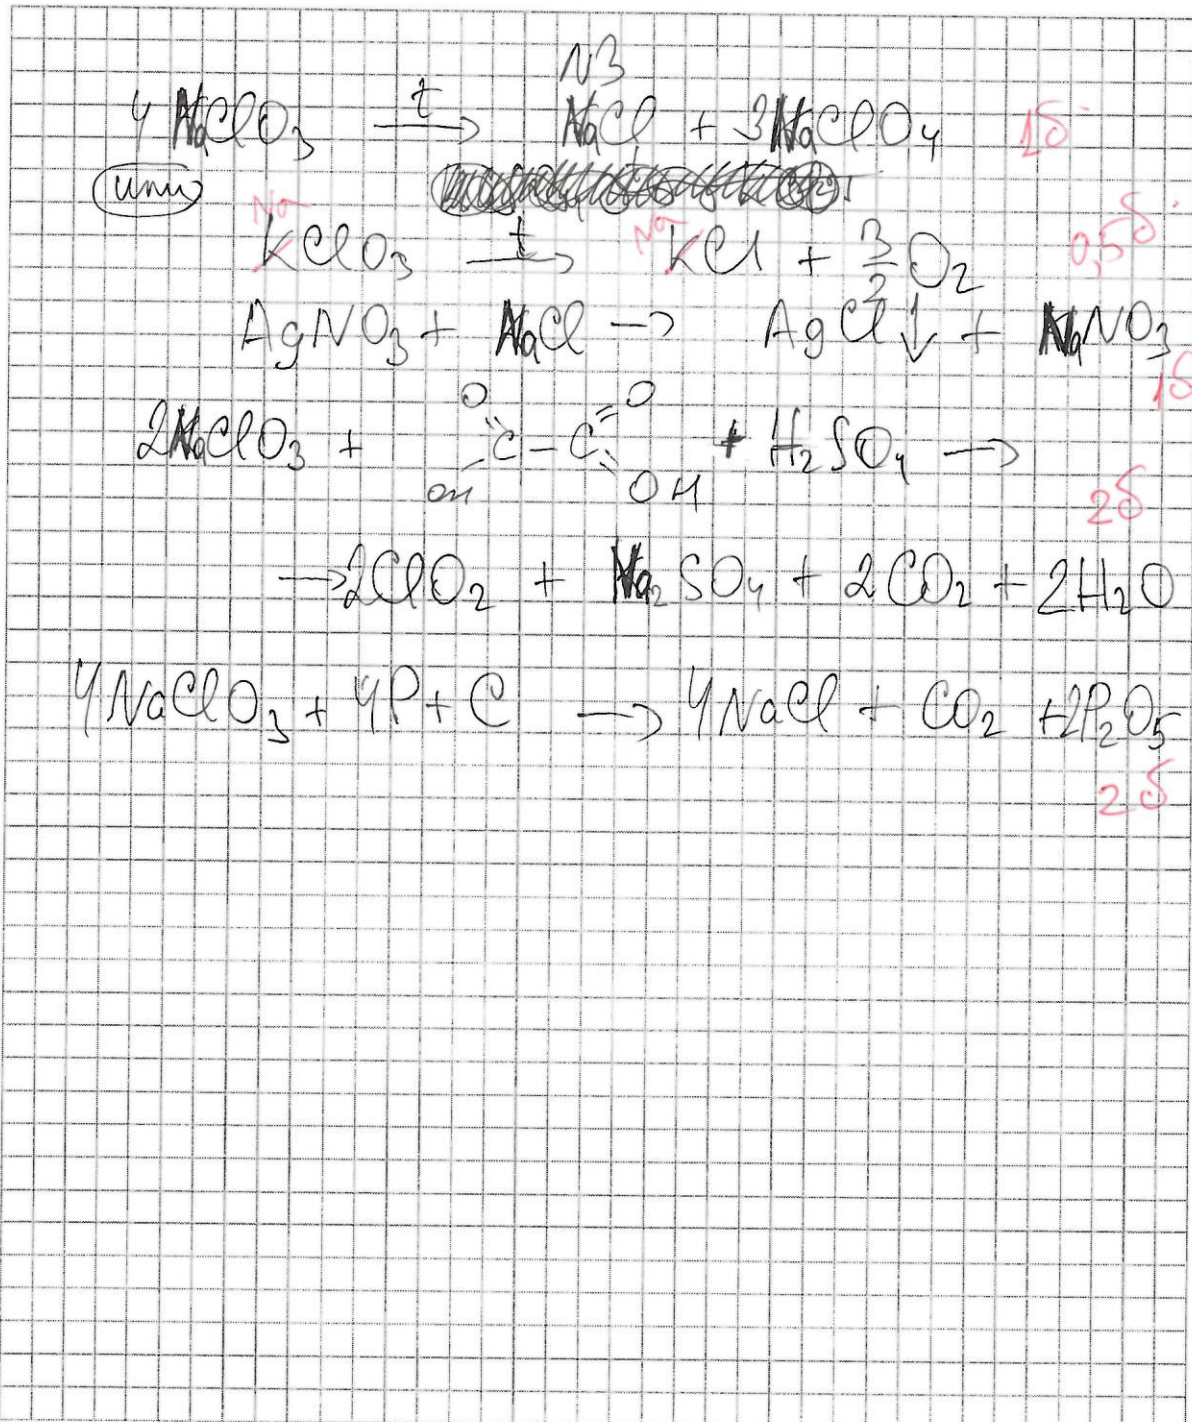 N3
4 NaClO₃ —t→ NaCl + 3NaClO₄ 1б
или
Na Na
KClO₃ —t→ KCl + 3/2 O₂ 0,5б
AgNO₃ + NaCl → AgCl↓ + NaNO₃
1б
O O
2NaClO₃ + C – C + H₂SO₄ →
OH OH
2б
→ 2ClO₂ + Na₂SO₄ + 2CO₂ + 2H₂O
4NaClO₃ + 4P + C → 4NaCl + CO₂ + 2P₂O₅
2б